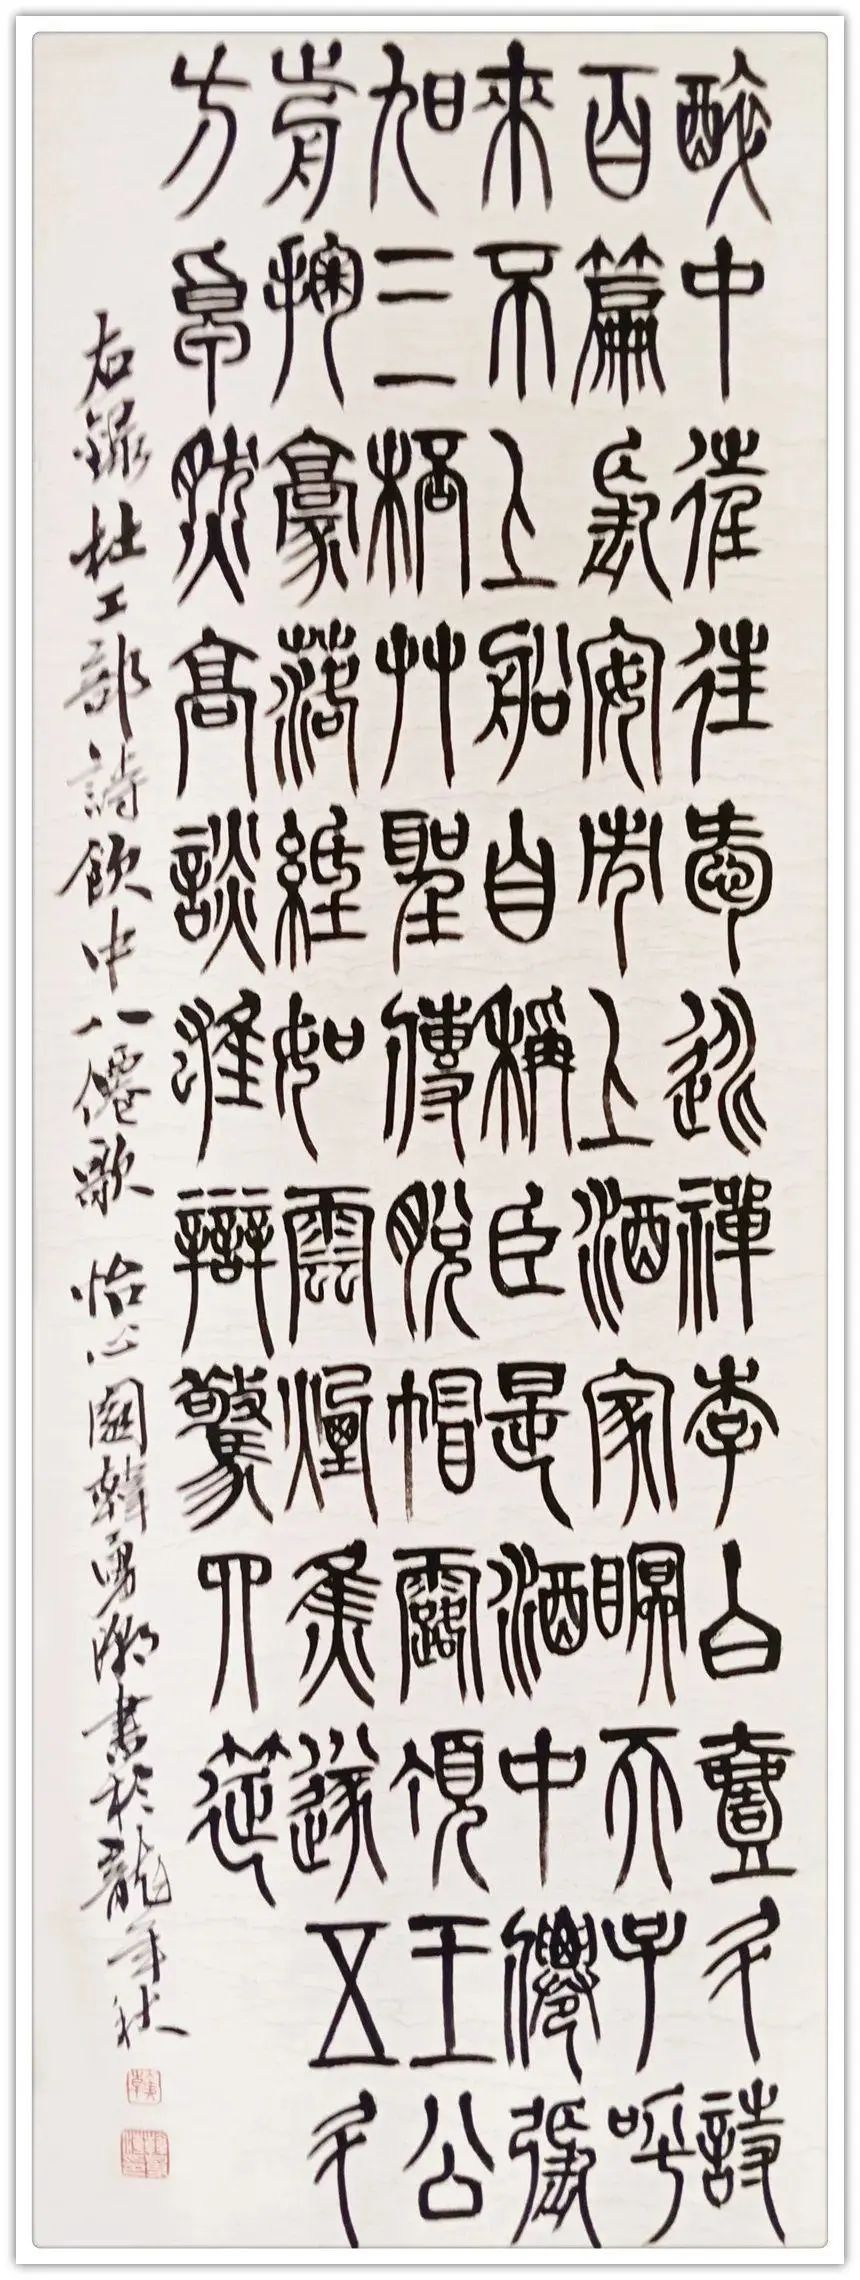 醉中往往愛逃禪李白壹斗詩
百篇長安市上酒家眠天子呼
來不上船自稱臣是酒中僊張
旭三桮艸聖傳脫帽露頂王公
前揮豪落紙如雲煙焦遂五斗
方卓然高談雄辯驚四筵
右錄杜工部詩飲中八僊歌 怡心園韓勇潮書於龍年秋